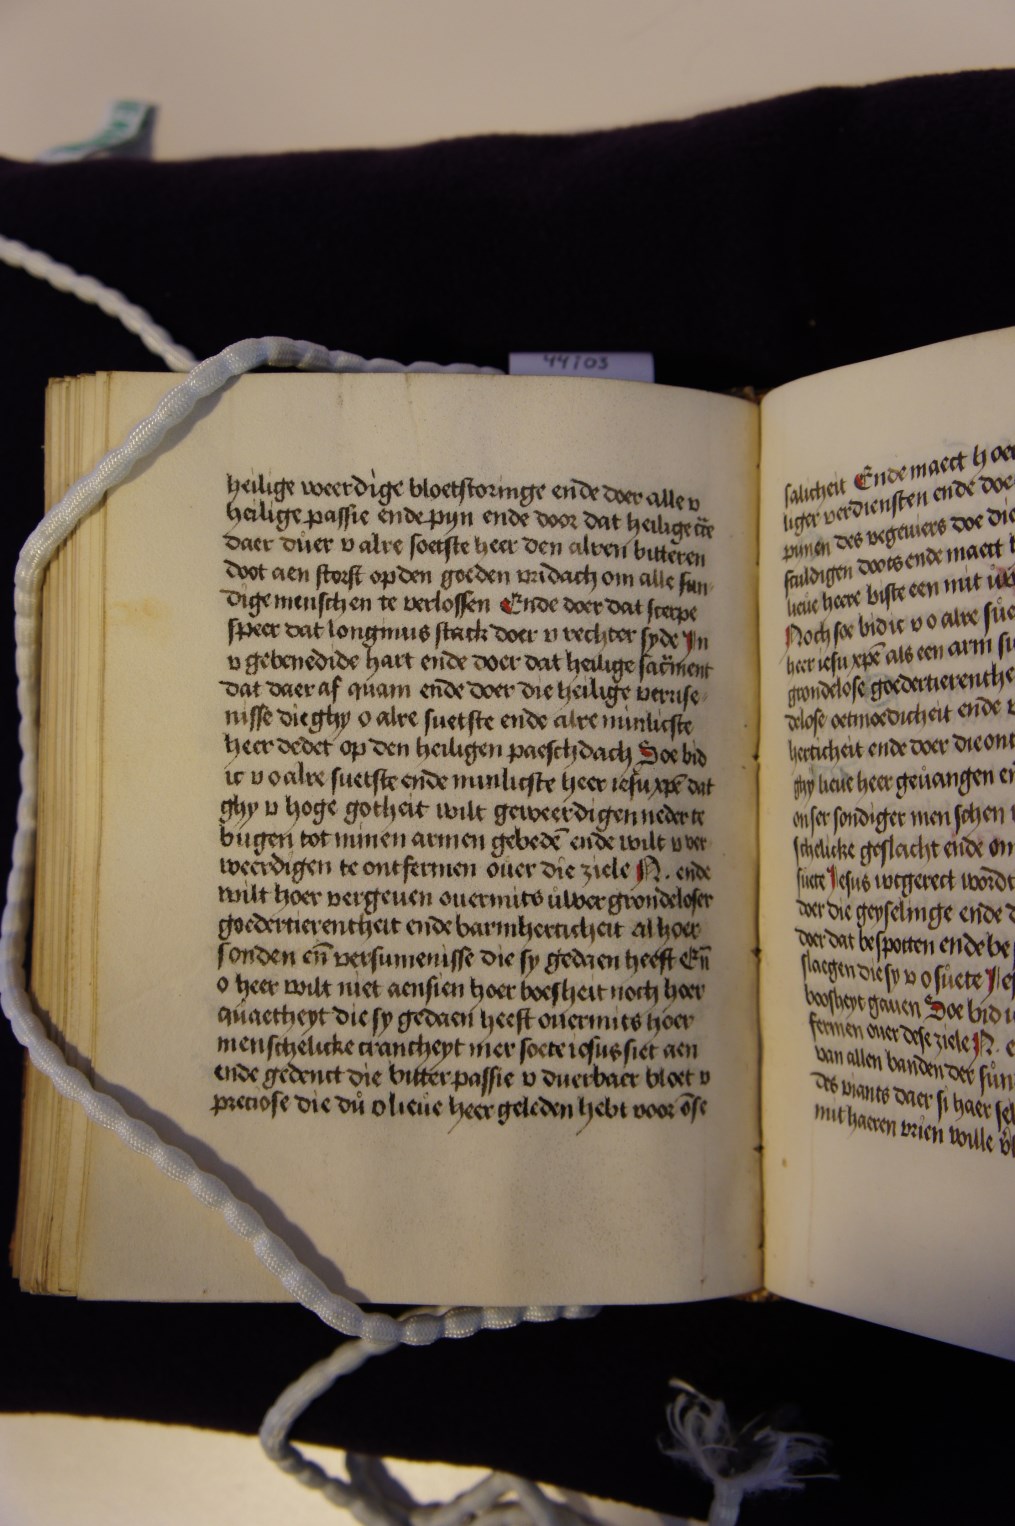 44103
heilige weerdige bloetstoringe ende doer alle v
heilige passie ende pyn ende door dat heilige
daer duer v alre soetste heer den alren bitteren
doot aen storst op den goeden vridach om alle sun-
dige menschen te verlossen Ende doer dat scerpe
speer dat longinus stack doer v rechter syde In
v gebenedide hart ende doer dat heilige sacrment
dat daer af quam ende doer die heilige verrise-
nisse die ghy o alre suetste ende alre minlicste
heer dedet op den heiligen paeschdach Soe bid
ic v o alre suetste ende minlicste heer iesu xpe dat
ghy v hoge gotheit wilt geweerdigen neder te
bugen tot minen armen gebedē ende wilt v ver-
weerdigen te ontfermen ouer die ziele N. ende
wilt hoer vergeven ouermits uwer grondeloser
goedertierentheit ende barmherticheit al hoer
sonden en̄ versumenisse die sy gedaen heeft En̄
o heer wilt niet aensien hoer boesheit noch hoer
quaetheyt die sy gedaen heeft ouermits hoer
menschelicke crancheyt mer soete iesus siet aen
ende gedenct die bitter passie v duerbaer bloet v
preciose die du o lieue heer geleden hebt voor ōse
salicheit Ende maect hoer
liger verdiensten ende doe
pijnen des vegeviers doe die
sculdigen doots ende maect
lieue heere biste een mit
Noch soe bid ic v o alre sue
heer iesu xpe als een arm su
grondelose goedertierenthe
delose oetmoedicheit ende v
herticheit ende doer die ont
ghy lieue heer geuangen en
onser sondiger menschen
schelicke geslacht ende om
suete Iesus wtgerect wordt
doer die geyselinge ende d
doer dat bespotten ende be
slaegen die sy v o suete Ies
boosheyt gauen Soe bid i
fermen ouer dese ziele N. e
van allen banden der sun
des viants daer si haer sel
mit haeren vrien wille